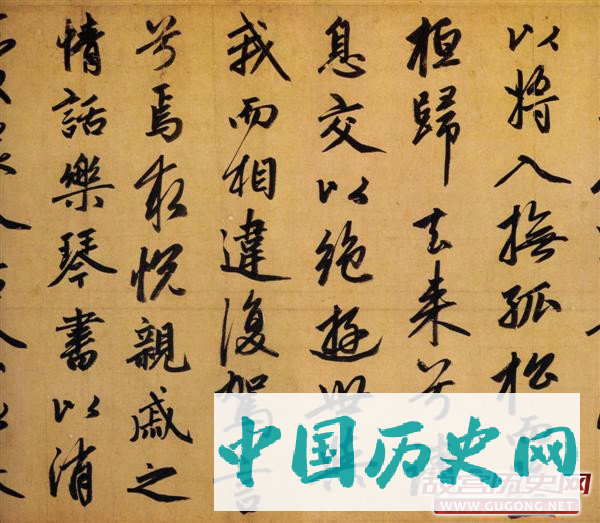 以將入撫孤松而
桓歸去来兮
息交以絶遊
我而相違復駕言
兮焉求悦親戚之
情話樂琴書以消
中国历史网
故宫历史网
WWW.GUGONG.NET